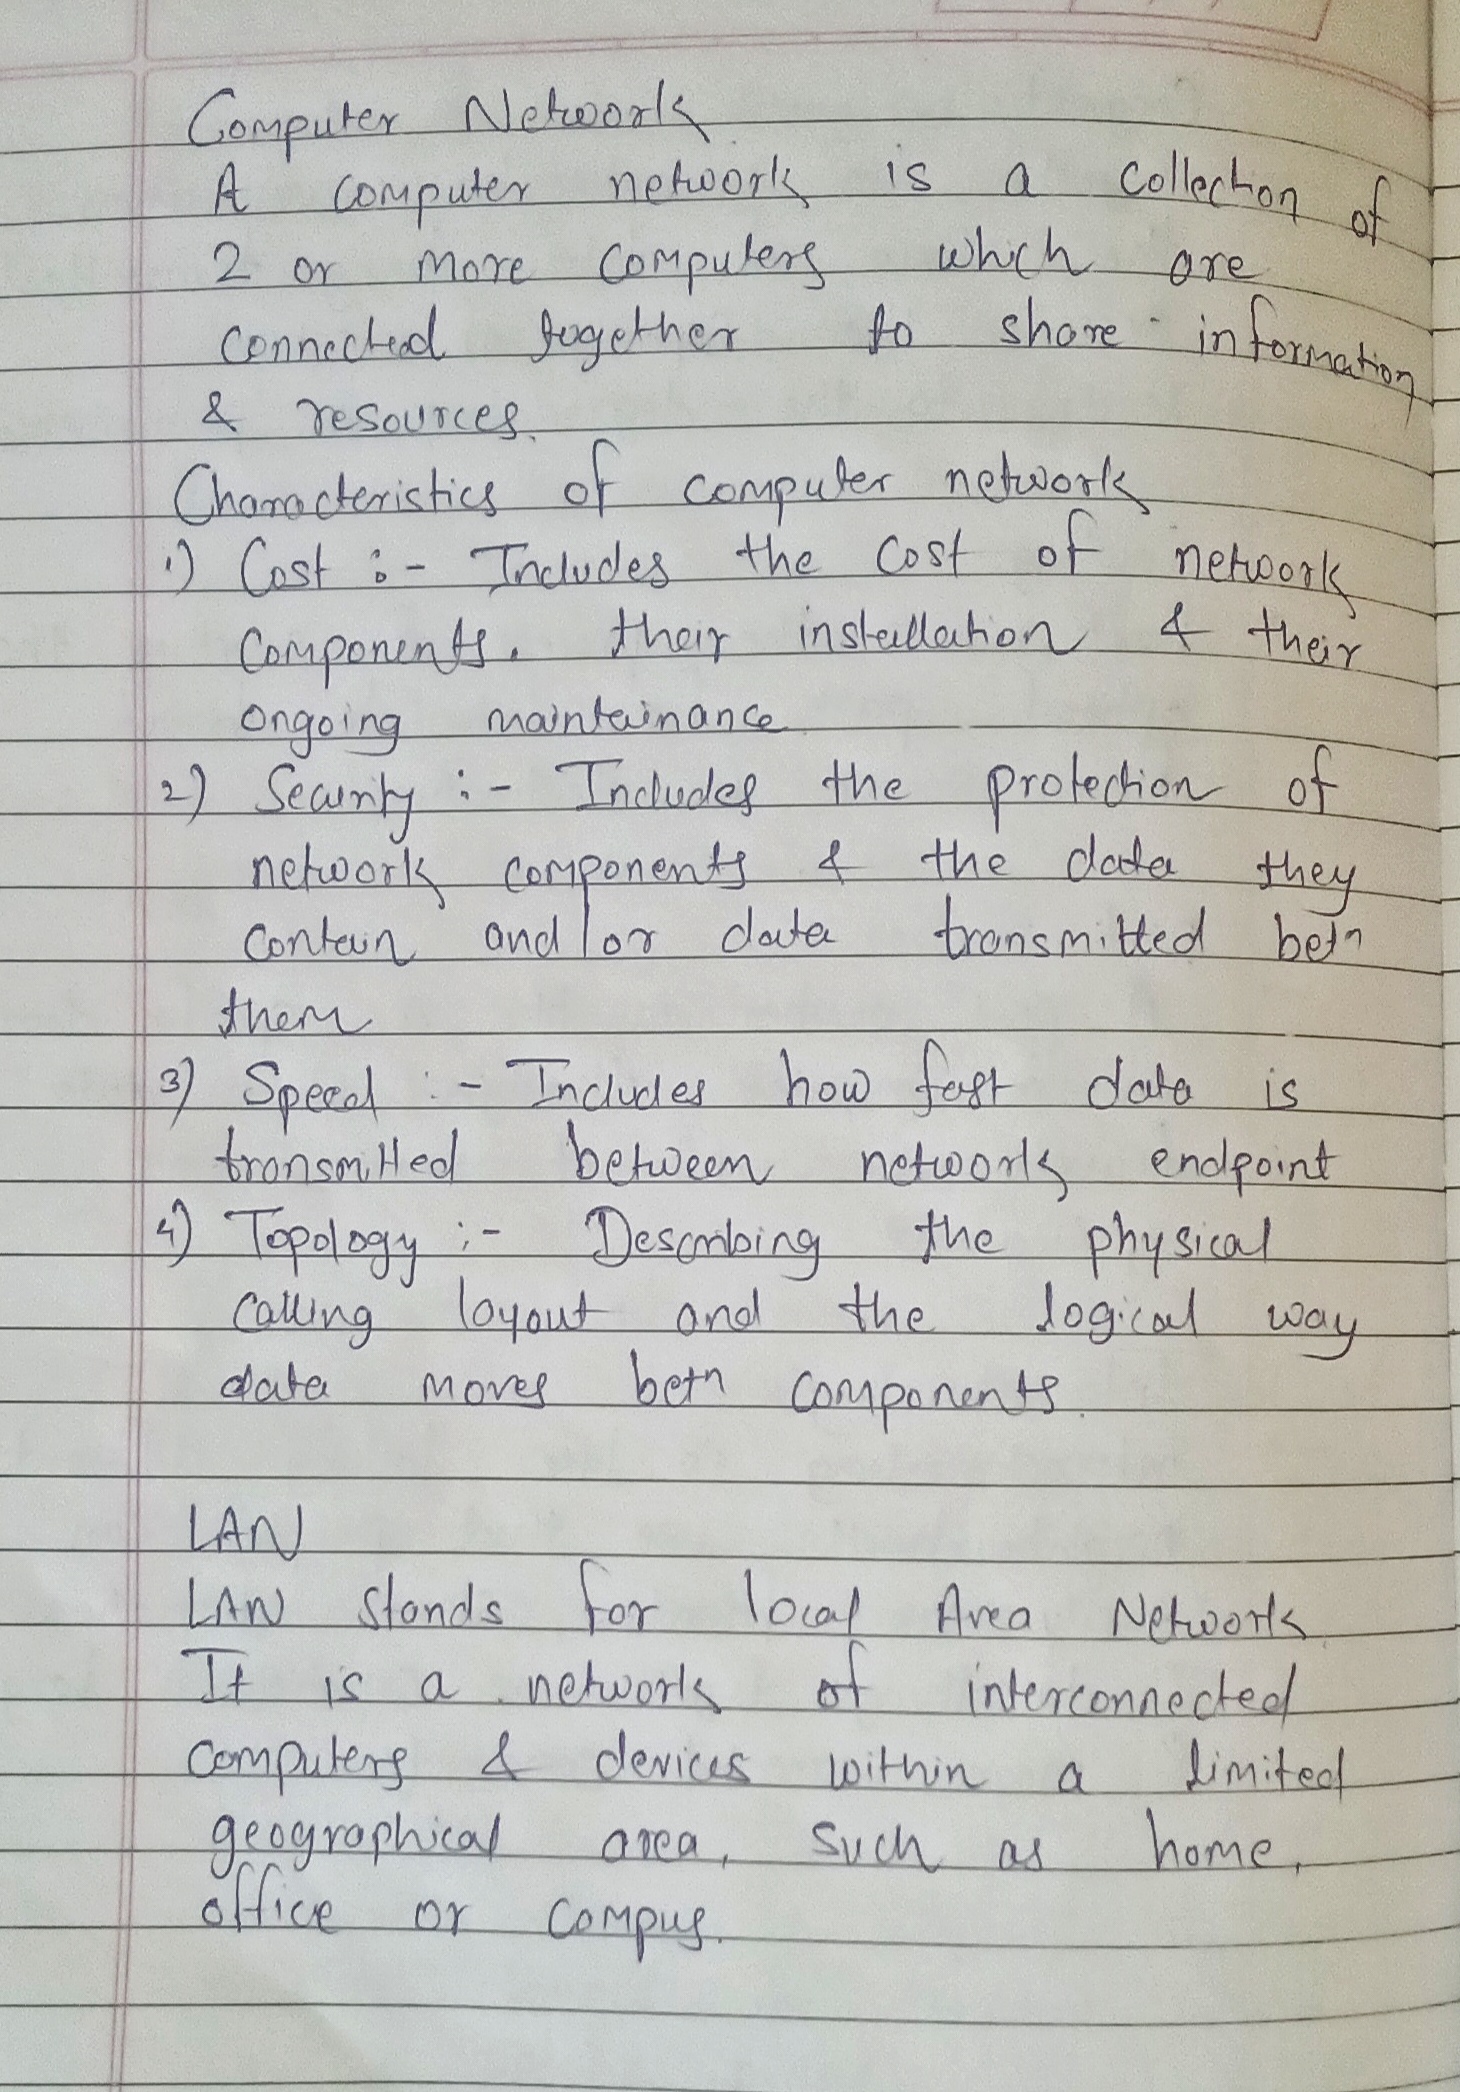 Computer Network
A computer network is a collection of
2 or more computers which are
connected together to share information
& resources.
Characteristics of computer network
1) Cost :- Includes the cost of network
components. their installation & their
ongoing maintainance
2) Security :- Includes the protection of
network components & the data they
contain and/or data transmitted betn
them
3) Speed :- Includes how fast data is
transmitted between network endpoint
4) Topology :- Describing the physical
calling layout and the logical way
data moves betn components.
LAN
LAN stands for local Area Network
It is a network of interconnected
computers & devices within a limited
geographical area, such as home,
office or compus.